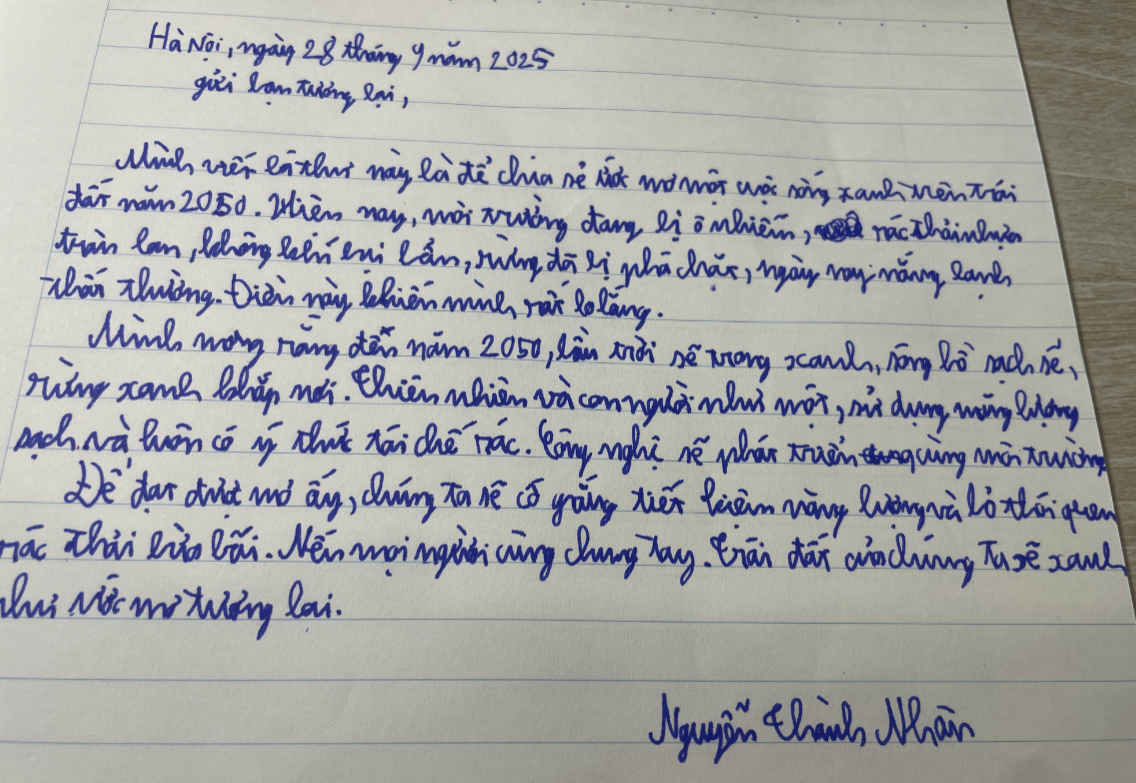 Hà Nội, ngày 28 tháng 9 năm 2025
gửi bạn tương lại,
Mình viết lá thư này là để chia sẻ ước mơ một cuộc sống xanh trên trái
đất năm 2050. Hiện nay, môi trường đang bị ô nhiễm, rác thải nhựa
tràn lan, không khí bụi bẩn, rừng đã bị phá chặt, ngày nay nắng lạnh
thất thường. Điều này khiến mình rất lo lắng.
Mình mong rằng đến năm 2050, bầu trời sẽ trong xanh, sông hồ sạch sẽ,
rừng xanh khắp nơi. Thiên nhiên và con người như một, sử dụng năng lượng
sạch và luôn có ý thức tái chế rác. Công nghệ sẽ phát triển cùng môi trường
Để đạt được mơ ấy, chúng ta sẽ cố gắng tiết kiệm năng lượng và bỏ thói quen
rác thải bừa bãi. Nếu mọi người cùng chung tay. Trái đất của chúng ta sẽ xanh
như ước mơ tương lai.
Nguyễn Thành Nhân